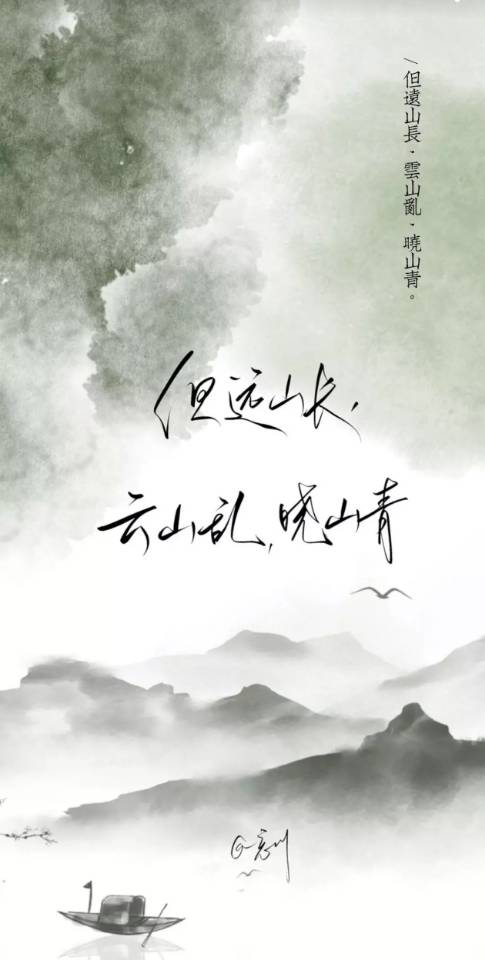 \但遠山長·雲山亂·曉山青。
但远山长，
云山乱，晓山青
@忘川